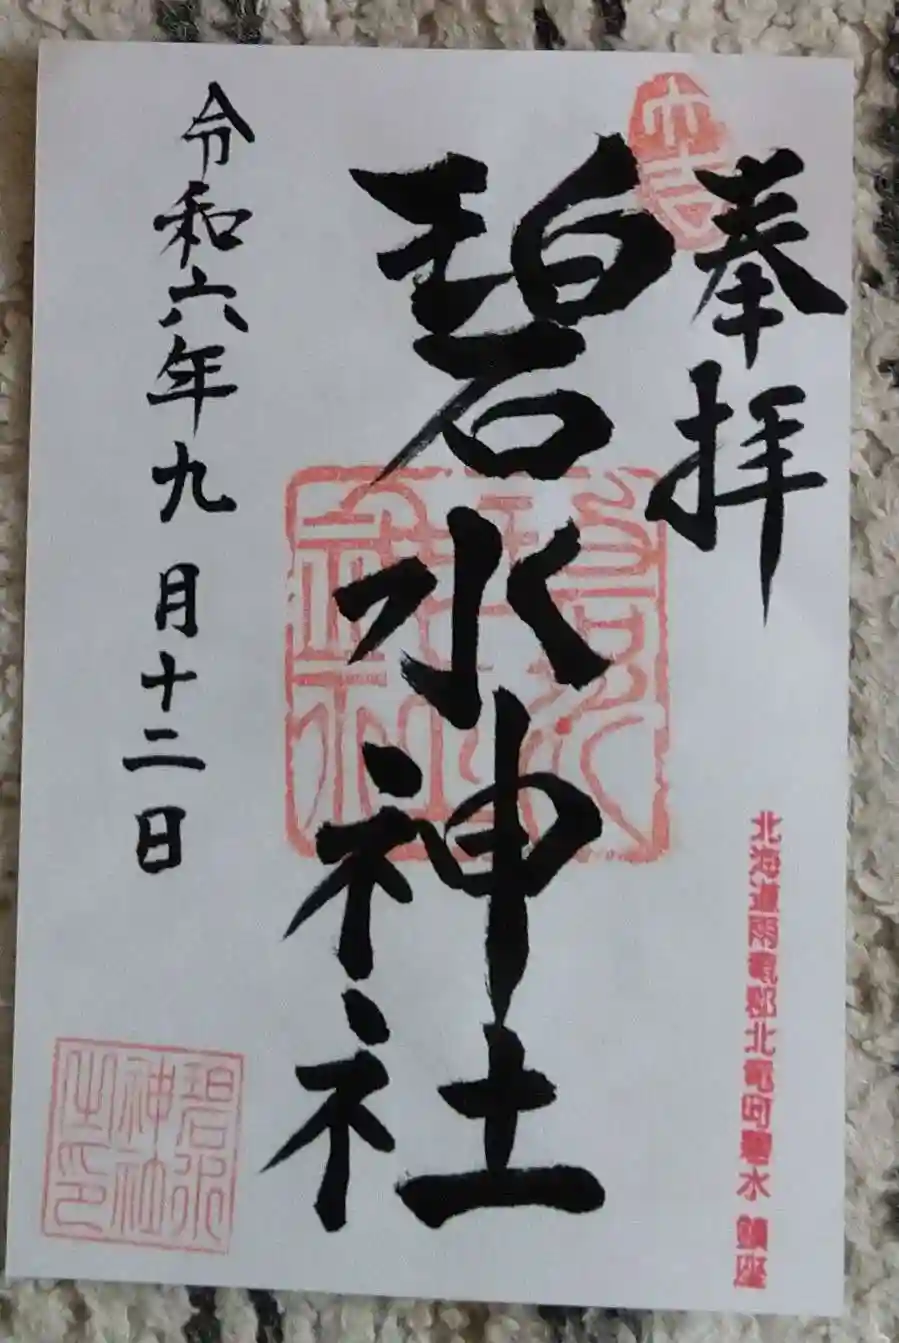 大吉
奉拝
北海道雨竜郡北竜町碧水 鎮座
碧水神社
令和六年九月十二日
碧水
神社
之印